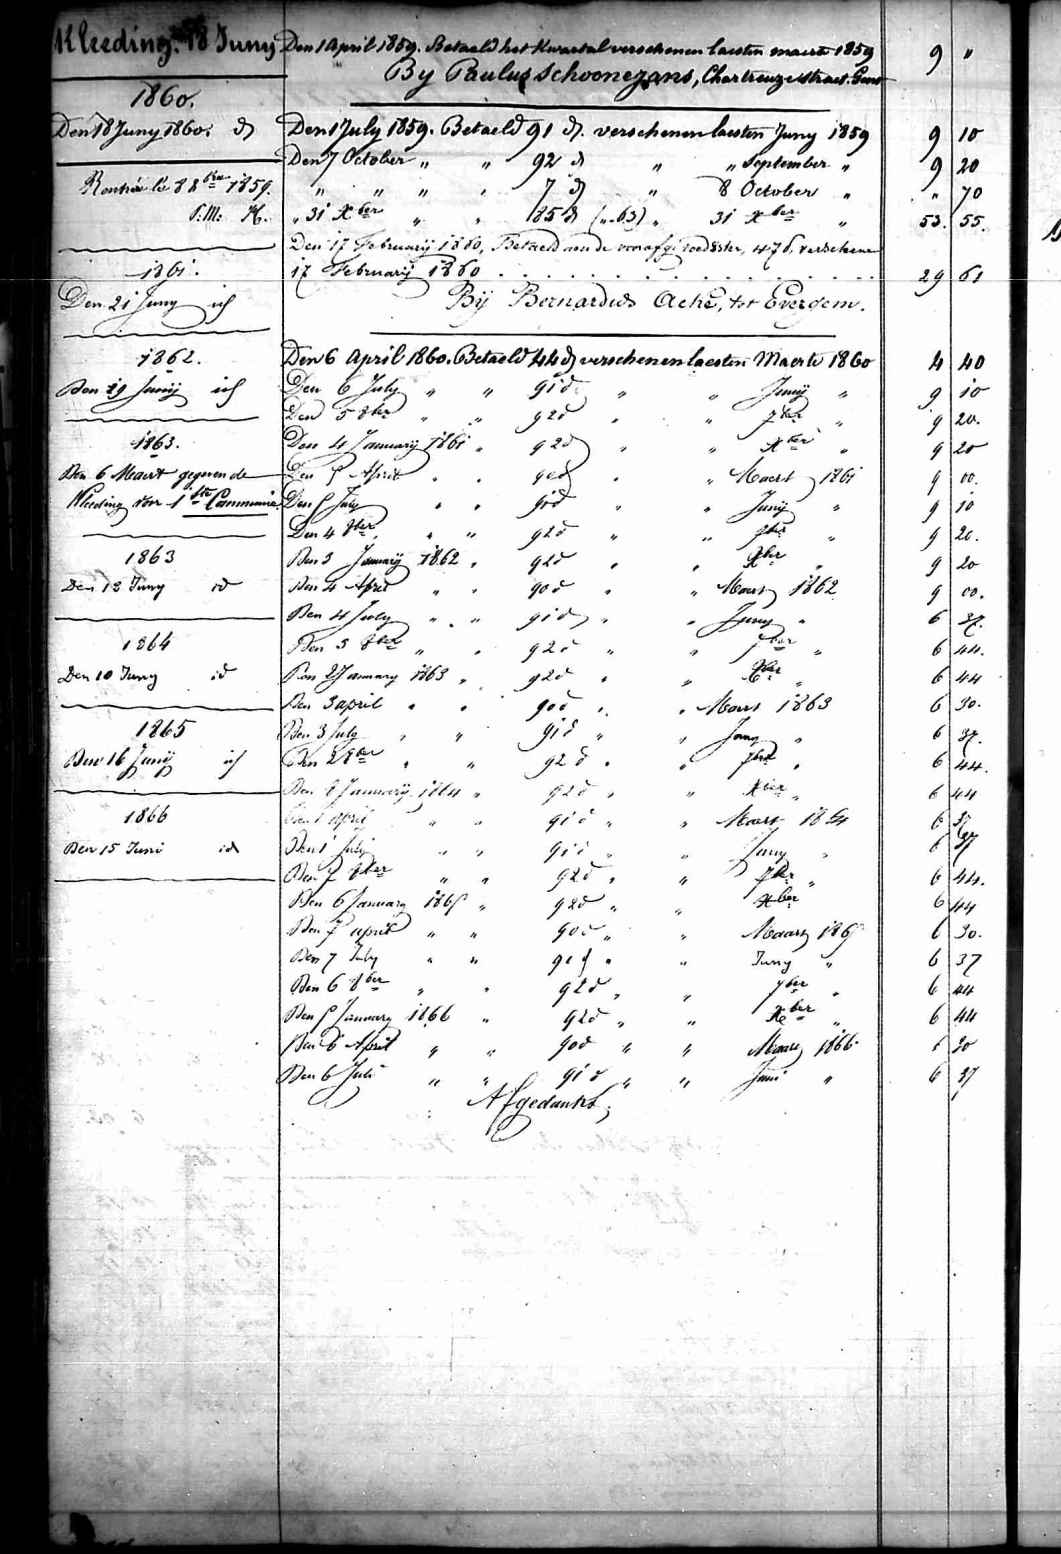 Kleeding. 18 Juny
1860.
Den 18 Juny 1860. d
Rentrée le 8 8bre 1859.
P. M. H.
1861.
Den 21 Juny id
1862.
Den 19 Junij id
1863.
Den 6 Maert gegeven de
Kleeding voor 1ste Communie.
1863
Den 12 Juny id
1864
Den 10 Juny id
1865
Den 16 Junij id
1866
Den 15 Juni id
Den 1 April 1859. Betaeld het kwartal verschenen laesten maerte 1859 9 "
By Paulus Schoonejans, Chartreuzestraet. Gent
Den 1 July 1859. Betaeld 91 d. verschenen laesten Juny 1859 9 10
Den 7 October " " 92 d " " September " 9 20
" " " " 7 d " 8 October " " 70
" 31 Xber " " 85 d (..63) " 31 Xber " 53. 55.
Den 17 Februarij 1860, Betaeld aen de voorafge voedster, 47 d. verschenen
17 Februarij 1860 . . . . . . . . . . . . 29 61
Bij Bernardus Ache, tot Evergem.
Den 6 April 1860. Betaeld 44 d verschenen laesten Maerte 1860 4 40
Den 6 July " " 91 d " " Junij " 9 10
Den 5 8ber " " 92 d " " 7ber " 9 20.
Den 4 January 1861 " 92 d " " Xber " 9 20
Den 5 April " " 90 d " " Maert 1861 9 00.
Den 5 July " " 91 d " " Junij " 9 10
Den 4 8ber " " 92 d " " 7ber " 9 20.
Den 3 Januarij 1862 " 92 d " " Xber " 9 20
Den 4 April " " 90 d " " Maert 1862 9 00.
Den 4 July " " 91 d " " Juny " 6 37.
Den 3 8ber " " 92 d " " 7ber " 6 44.
Den 2 January 1863 " 92 d " " Xber " 6 44
Den 3 april " " 90 d " " Maert 1863 6 30.
Den 3 July " " 91 d " " Juny " 6 37.
Den 2 8ber " " 92 d " " 7ber " 6 44.
Den 8 Januarij 1864 " 92 d " " Xber " 6 44
Den 1 april " " 91 d " " Maert 1864 6 37
Den 1 July " " 91 d " " Juny " 6 37
Den 7 8ber " " 92 d " " 7ber " 6 44.
Den 6 January 1865 " 92 d " " Xber 6 44
Den 7 april " " 90 d " " Maart 1865 6 30.
Den 7 July " " 91 d " " Juny " 6 37
Den 6 8ber " " 92 d " " 7ber " 6 44
Den 5 January 1866 " 92 d " " Xber " 6 44
Den 6 April " " 90 d " " Maart 1866 6 30
Den 6 Juli " " 91 d " " Juni " 6 37
Afgedankt.